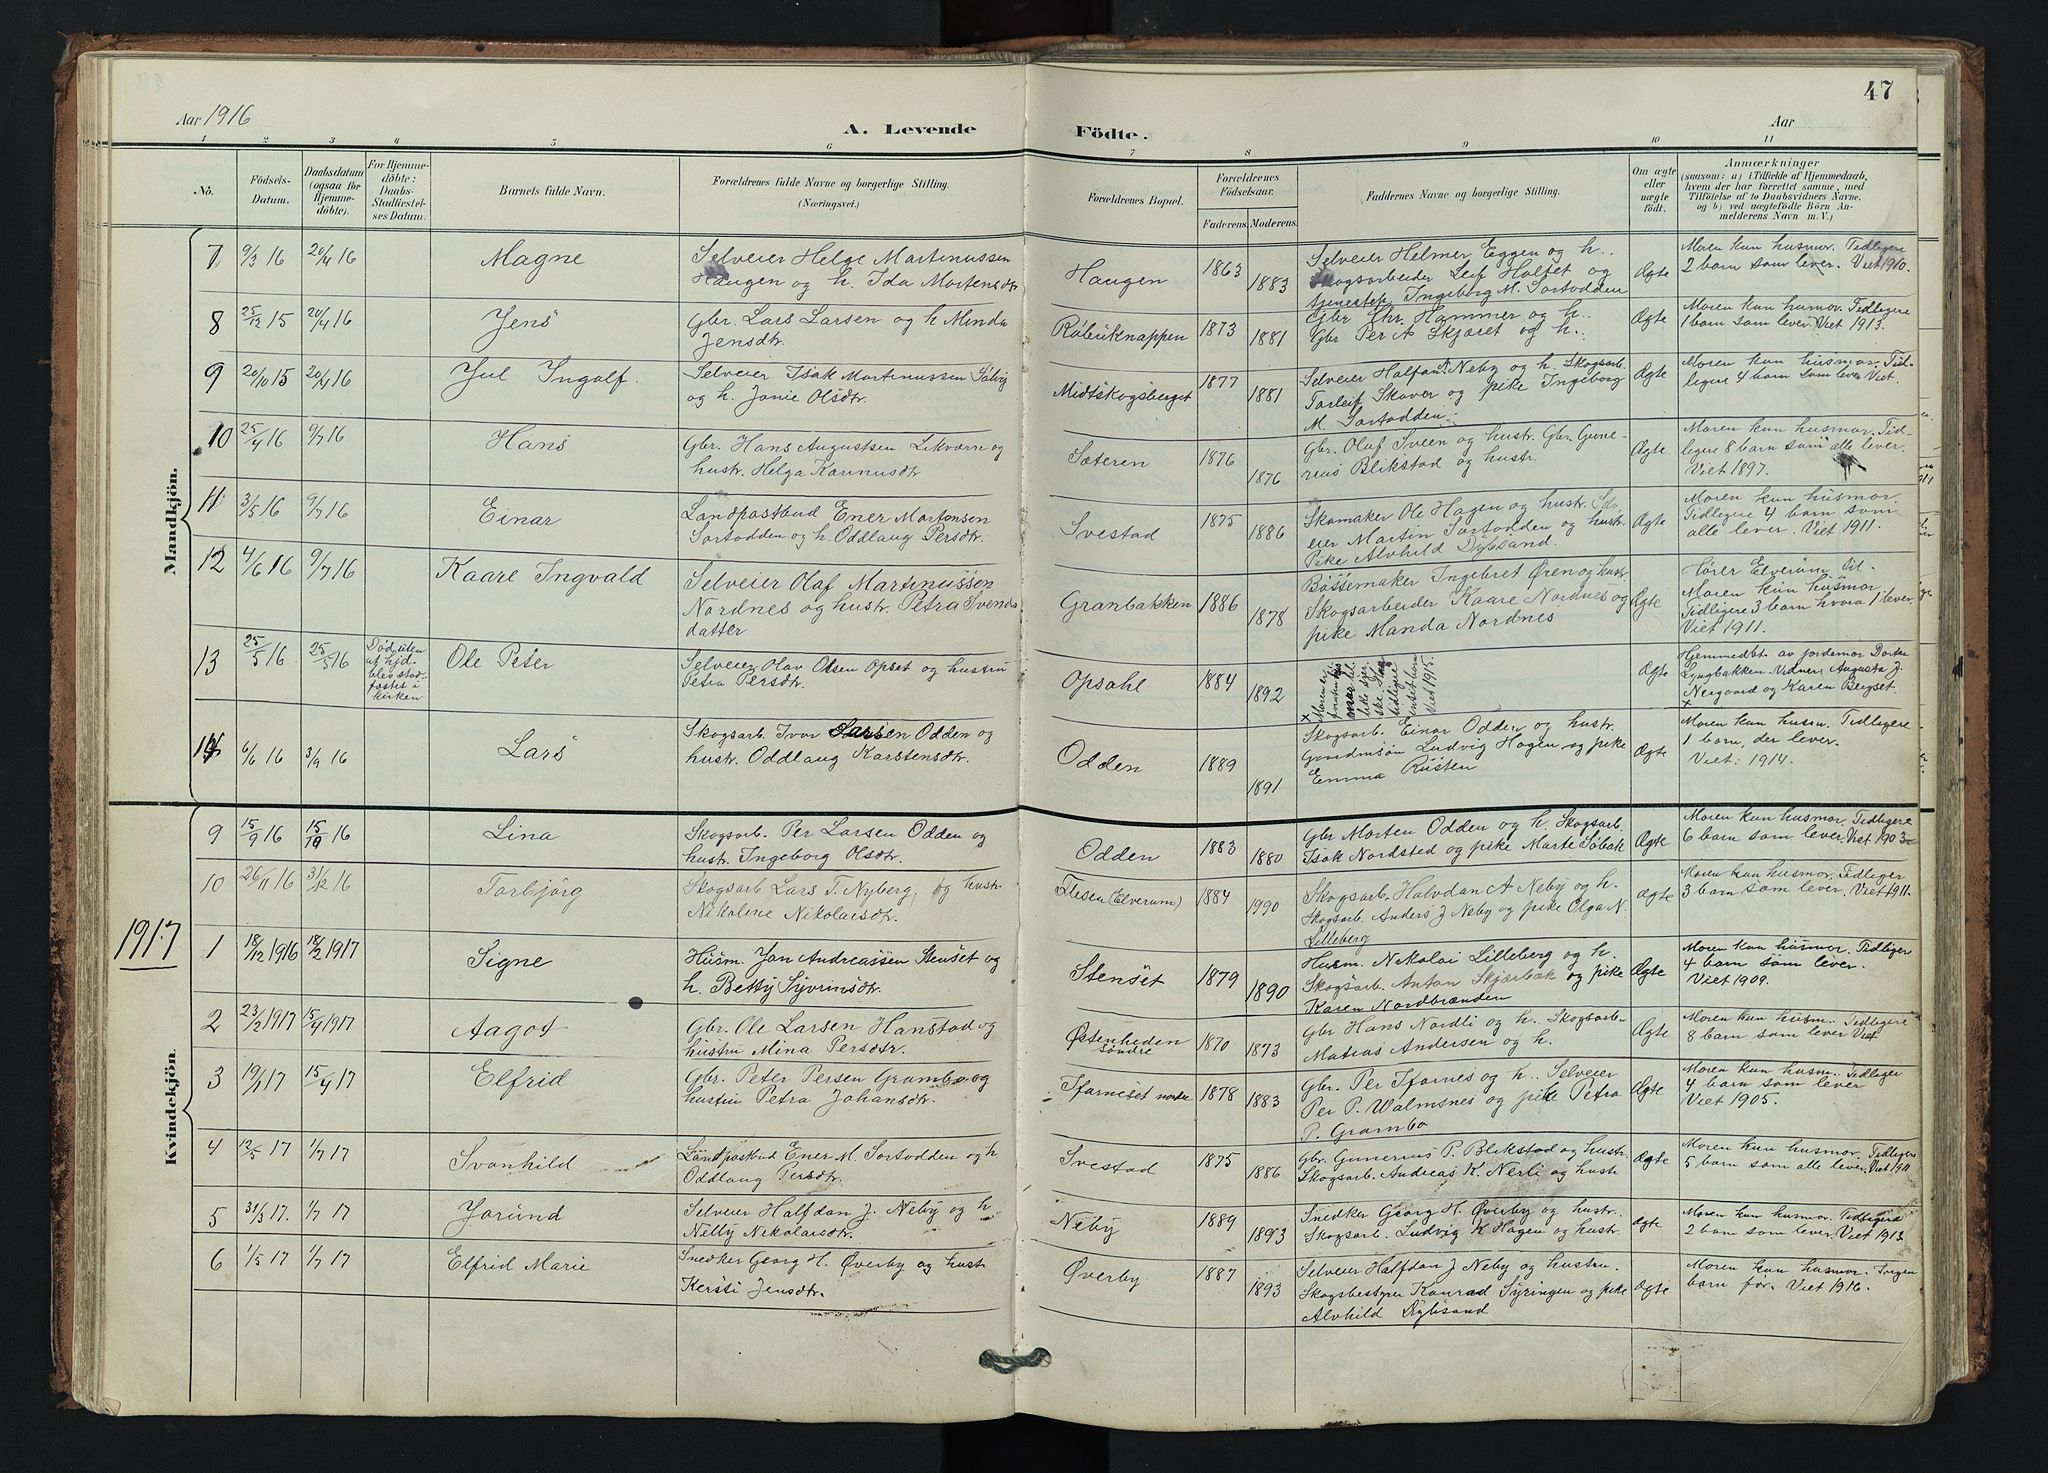 47
Aar 1916
A. Levende Födte.
Aar
1 2 3 4 5 6 7 8 9 10 11
No.
Födsels-Datum.
Daabsdatum (ogsaa for Hjemmedöbte).
For Hjemmedöbte: Daabs-Stadfæstelses Datum.
Barnets fulde Navn.
Forældrenes fulde Navne og borgerlige Stilling.
(Næringsvei.)
Forældrenes Bopæl.
Forældrenes Födselsaar.
Faderens. Moderens.
Faddernes Navne og borgerlige Stilling.
Om ægte eller uægte födt.
Anmærkninger
(saasom: a) i Tilfælde af Hjemmedaab,
hvem der har forrettet samme, med
Tilföielse af to Daabsvidners Navne,
og b) ved uægtefödte Börn An-
melderens Navn m. V.)
Mandkjön.
7 9/3 16 20/4 16 Magne
Selveier Helge Martinussen
Haugen og h. Ida Mortensdtr
Haugen 1863 1883
Selveier Helmer Eggen og h..
Skogsarbeider Leif Holtet og
tjenestep. Ingeborg M. Sortodden
Ægte
Moren kun husmor. Tidligere
2 barn som lever. Viet 1910.
8 25/12 15 20/4 16 Jens
Gbr. Lars Larsen og h Minda
Jensdtr.
Røbuknappen 1873 1881
Gbr Chr. Hammer og h..
Gbr Per A Skjæret og h..
Ægte
Moren kun husmor. Tidligere
1 barn som lever. Viet 1913.
9 20/10 15 20/4 16 Jul Ingolf.
Selveier Isak Martinussen
og h. Janie Olsdtr.
Midtskogsberget 1877 1881
Selveier Halfan Neby og h. Skogsarb.
Torleif Skaver og pike Ingeborg
M. Sortodden.
Ægte
Moren kun husmor. Tid-
ligere 4 barn som lever Viet.
10 25/4 16 9/7 16 Hans
Gbr. Hans Augustsen Lekværne og
hustr. Helga Karinusdtr
Sæteren 1876 1876
Gbr. Oluf Sveen og hustr. Gbr. Gune-
rius Blikstad og hustr.
Ægte.
Moren kun husmor. Tid-
ligere 8 barn som alle lever.
Viet 1897.
11 3/5 16 9/7 16 Einar
Landpostbud Ener Martonsen
Sortodden og h. Oddlaug Persdtr.
Svestad 1875 1886
Skomaker Ole Hagen og hustr. Selv-
eier Martin Sortodden og hustr
Pike Alvhild Dybsand.
Ægte
Moren kun husmor.
Tidligere 4 barn som
alle lever. Viet 1911.
12 4/6 16 9/7 16 Kaare Ingvald
Selveier Olaf Martinussen
Nordnes og hustr. Petra Svends
datter
Granbakken 1886 1878
Bössemaker Ingebret Øren og hustr
Skogsarbeider Kaare Nordnes og
pike Manda Nordnes
Ægte
Hører Elverum til.
Moren kun husmor
Tidligere 3 barn hvora 1 lever.
Viet 1911.
13 25/5 16 25/5 16
Död uten
at hjd.
blev stad-
fæstet i
kirken
Ole Peter
Selveier Olav Olsen Opset og hustru
Petra Persdtr.
Opsahl 1884 1892
Viet 1915.
Ægte
Hjemmedbt. av jordemor Dorte
Lyngbakken. Vidner: Augusta J.
Nergaard og Karen Bergset.
14 6/6 16 3/9 16 Lars
Skogsarb. Ivar Larsen Odden og
hustr. Oddlaug Karstensdtr.
Odden 1889 1891
Skogsarb. Einar Odden og hustr.
Gaardmsön Ludvig Hagen og pike
Emma Rusten
Ægte
Moren kun husm. Tidligere
1 barn, der lever.
Viet: 1914.
Kvindekjön.
9 15/9 16 15/10 16 Lina
Skogsarb. Per Larsen Odden og
hustr. Ingeborg Olsdtr.
Odden 1883 1880
Gbr Morten Odden og h. Skogsarb.
Isak Nordsted og pike Marte Söbak
Ægte
Moren kun husmor. Tidligere
6 barn som lever. Viet 1903
10 26/11 16 31/12 16 Torbjörg
Skogsarb Lars T. Nyberg, og hustr.
Nikoline Nikolaisdtr.
Flisen (Elverum) 1884 1990
Skogsarb. Halvdan A Neby og h.
Skogsarb. Anders J Neby og pike Olga N.
Lilleberg
Ægte
Moren kun husmor. Tidligere
3 barn som lever. Viet 1911.
1917
1 18/12 1916 18/2 1917 Signe
Husm. Jan Andreassen Stenset og
h. Betty Syvrinsdtr.
Stenset 1879 1890
Husm. Nikolai Lilleberg og h.
Skogsarb. Anton Skjærbæk og pike
Karen Nordbrænden
Ægte
Moren kun husmor. Tidliger
4 barn som lever.
Viet 1909.
2 23/2 1917 15/4 1917 Aagot
Gbr. Ole Larsen Hanstad og
hustru Mina Persdtr.
Østenheden
søndre 1870 1873
Gbr Hans Nordli og h. Skogsarb.
Matias Andersen og h.
Ægte
Moren kun husm. Tidligere
8 barn som lever Viet
3 19/1 17 15/4 17 Elfrid
Gbr. Peter Persen Grambo og
hustru Petra Johansdtr.
Harneset nordre 1878 1883
Gbr. Per Harnes og h.. Selveier
Per P. Walmsnes og pike Petra
P. Grambo
Ægte
Moren kun husm. Tidliger
4 barn som lever
Viet 1905.
4 12/5 17 1/7 17 Svanhild
Landpostbud Ener M. Sortodden og h
Oddlaug Persdtr.
Svestad 1875 1886
Gbr. Gunerius P. Blikstad og hustr.
Skogsarb. Andreas K. Nerli og hustr
Ægte
Moren kun husmor. Tidligere
5 barn som alle lever. Viet 1911
5 31/3 17. 1/7 17 Jorund
Selveier Halfdan J. Neby og h.
Nelly Nikolaisdtr.
Neby 1889 1893
Snedker Georg H. Øverby og hustr.
Skogsarb. Ludvig K Hagen og hustr.
Ægte
Moren kun husmor. Tidligere
2 barn som lever. Viet 1913
6 1/5 17 1/7 17 Elfrid Marie
Snedker Georg H. Øverby og hustr
Kersti Jensdtr.
Øverby 1887 1893
Selveier Halfdan J Neby og hustru.
Skogsbestyrer Konrad Syringen og pike
Alvhild Dybsand
Ægte
Moren kun husmor. Ingen
barn før. Viet 1916.